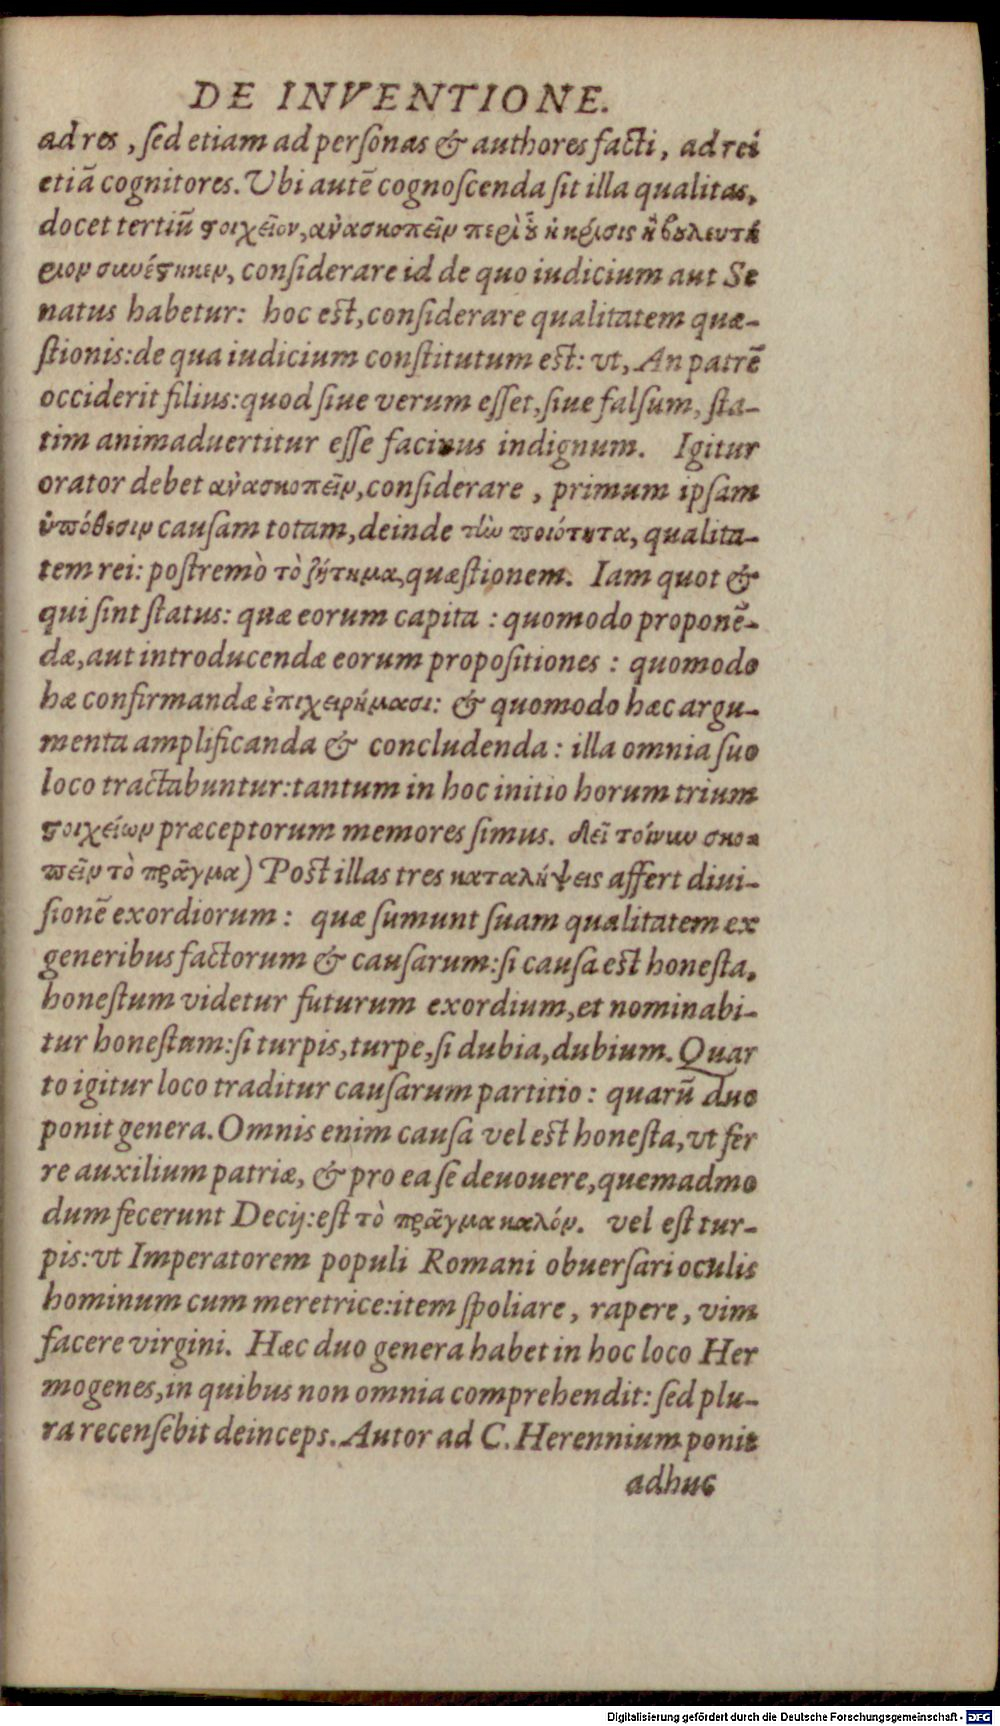 DE INVENTIONE.
ad res, ſed etiam ad perſonas & authores facti, ad rei
etiā cognitores. Vbi autē cognoſcenda ſit illa qualitas,
docet tertiū ϛοιχεῖον, ἀνασκοπεῖν περὶ οὗ ἡ κρίσις ἢ βουλευτή
ριον συνέϛηκεν, conſiderare id de quo iudicium aut Se
natus habetur: hoc eſt, conſiderare qualitatem quæ-
ſtionis: de qua iudicium conſtitutum eſt: vt, An patrē
occiderit filius: quod ſiue verum eſſet, ſiue falſum, ſta-
tim animaduertitur eſſe facinus indignum. Igitur
orator debet ἀνασκοπεῖν, conſiderare, primum ipſam
ὑπόθεσιν cauſam totam, deinde τὴν ποιότητα, qualita-
tem rei: poſtremò τὸ ζήτημα, quæſtionem. Iam quot &
qui ſint ſtatus: quæ eorum capita: quomodo proponē-
dæ, aut introducendæ eorum propoſitiones: quomodo
hæ confirmandæ ἐπιχειρήμασι: & quomodo hæc argu-
menta amplificanda & concludenda: illa omnia ſuo
loco tractabuntur: tantum in hoc initio horum trium
ϛοιχείων præceptorum memores ſimus. δεῖ τοίνυν σκο-
πεῖν τὸ πρᾶγμα) Poſt illas tres καταλήψεις affert diui-
ſionē exordiorum: quæ ſumunt ſuam qualitatem ex
generibus factorum & cauſarum: ſi cauſa eſt honeſta,
honeſtum videtur futurum exordium, et nominabi-
tur honeſtum: ſi turpis, turpe, ſi dubia, dubium. Quar
to igitur loco traditur cauſarum partitio: quarū duo
ponit genera. Omnis enim cauſa vel eſt honeſta, vt fer
re auxilium patriæ, & pro ea ſe deuouere, quemadmo
dum fecerunt Decij: eſt τὸ πρᾶγμα καλόν. vel eſt tur-
pis: vt Imperatorem populi Romani obuerſari oculis
hominum cum meretrice: item ſpoliare, rapere, vim
facere virgini. Hæc duo genera habet in hoc loco Her
mogenes, in quibus non omnia comprehendit: ſed plu-
ra recenſebit deinceps. Autor ad C. Herennium ponit
adhuc
Digitalisierung gefördert durch die Deutsche Forschungsgemeinschaft - DFG